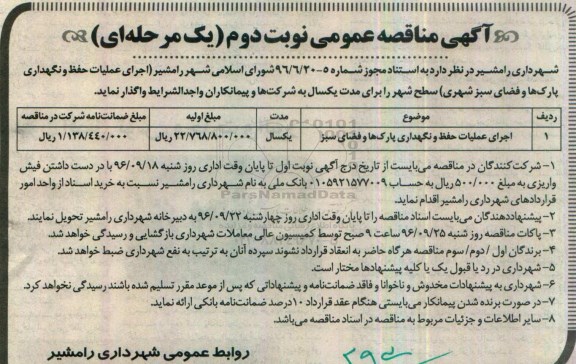 آگهی مناقصه عمومی نوبت دوم (یک مرحله‌ای)
شهرداری رامشیر در نظر دارد به استناد مجوز شماره ۵-۹۶/۶/۲۰ شورای اسلامی شهر رامشیر (اجرای عملیات حفظ و نگهداری
پارک‌ها و فضای سبز شهری) سطح شهر را برای مدت یکسال به شرکت‌ها و پیمانکاران واجدالشرایط واگذار نماید.
ردیف موضوع مدت مبلغ اولیه مبلغ ضمانت‌نامه شرکت در مناقصه
۱ اجرای عملیات حفظ و نگهداری پارک‌ها و فضای سبز یکسال ۲۲/۷۶۸/۸۰۰/۰۰۰ ریال ۱/۱۳۸/۴۴۰/۰۰۰ ریال
۱- شرکت‌کنندگان در مناقصه می‌بایست از تاریخ درج آگهی نوبت اول تا پایان وقت اداری روز شنبه ۹۶/۰۹/۱۸ با در دست داشتن فیش
واریزی به مبلغ ۵۰۰/۰۰۰ ریال به حساب ۰۱۰۵۹۲۱۵۷۷۰۰۹ بانک ملی به نام شهرداری رامشیر نسبت به خرید اسناد از واحد امور
قراردادهای شهرداری رامشیر اقدام نماید.
۲- پیشنهاددهندگان می‌بایست اسناد مناقصه را تا پایان وقت اداری روز چهارشنبه ۹۶/۰۹/۲۲ به دبیرخانه شهرداری رامشیر تحویل نمایند.
۳- پاکات مناقصه روز شنبه ۹۶/۰۹/۲۵ ساعت ۹ صبح توسط کمیسیون عالی معاملات شهرداری بازگشایی و رسیدگی خواهد شد.
۴- برندگان اول / دوم / سوم مناقصه هرگاه حاضر به انعقاد قرارداد نشوند سپرده آنان به ترتیب به نفع شهرداری ضبط خواهد شد.
۵- شهرداری در رد یا قبول یک یا کلیه پیشنهادها مختار است.
۶- شهرداری به پیشنهادات مخدوش و ناخوانا و فاقد ضمانت‌نامه و پیشنهاداتی که پس از موعد مقرر تسلیم شده باشند رسیدگی نخواهد کرد.
۷- در صورت برنده شدن پیمانکار می‌بایستی هنگام عقد قرارداد ۱۰درصد ضمانت‌نامه بانکی ارائه نماید.
۸- سایر اطلاعات و جزئیات مربوط به مناقصه در اسناد مناقصه می‌باشد.
روابط عمومی شهرداری رامشیر